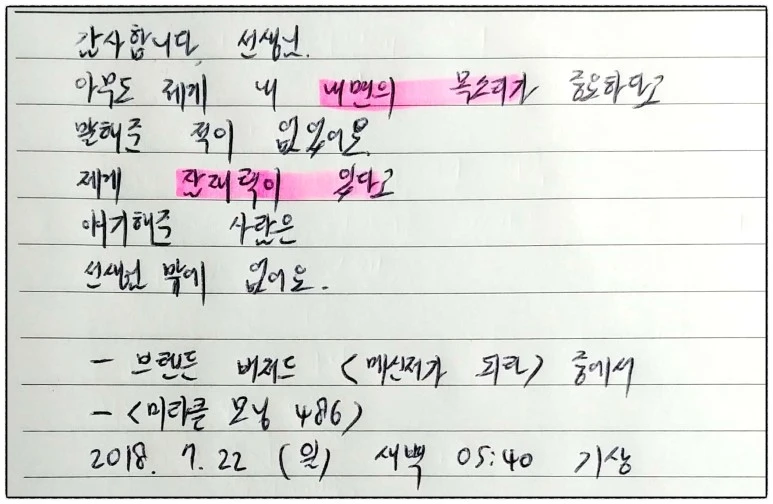 감사합니다, 선생님.
아무도 제게 내 내면의 목소리가 중요하다고
말해준 적이 없었어요.
제게 잠재력이 있다고
얘기해준 사람은
선생님 밖에 없어요.
- 브렌든 버처드 <메신저가 되라> 중에서
- <미라클 모닝 486>
2018. 7. 22 (일) 새벽 05:40 기상